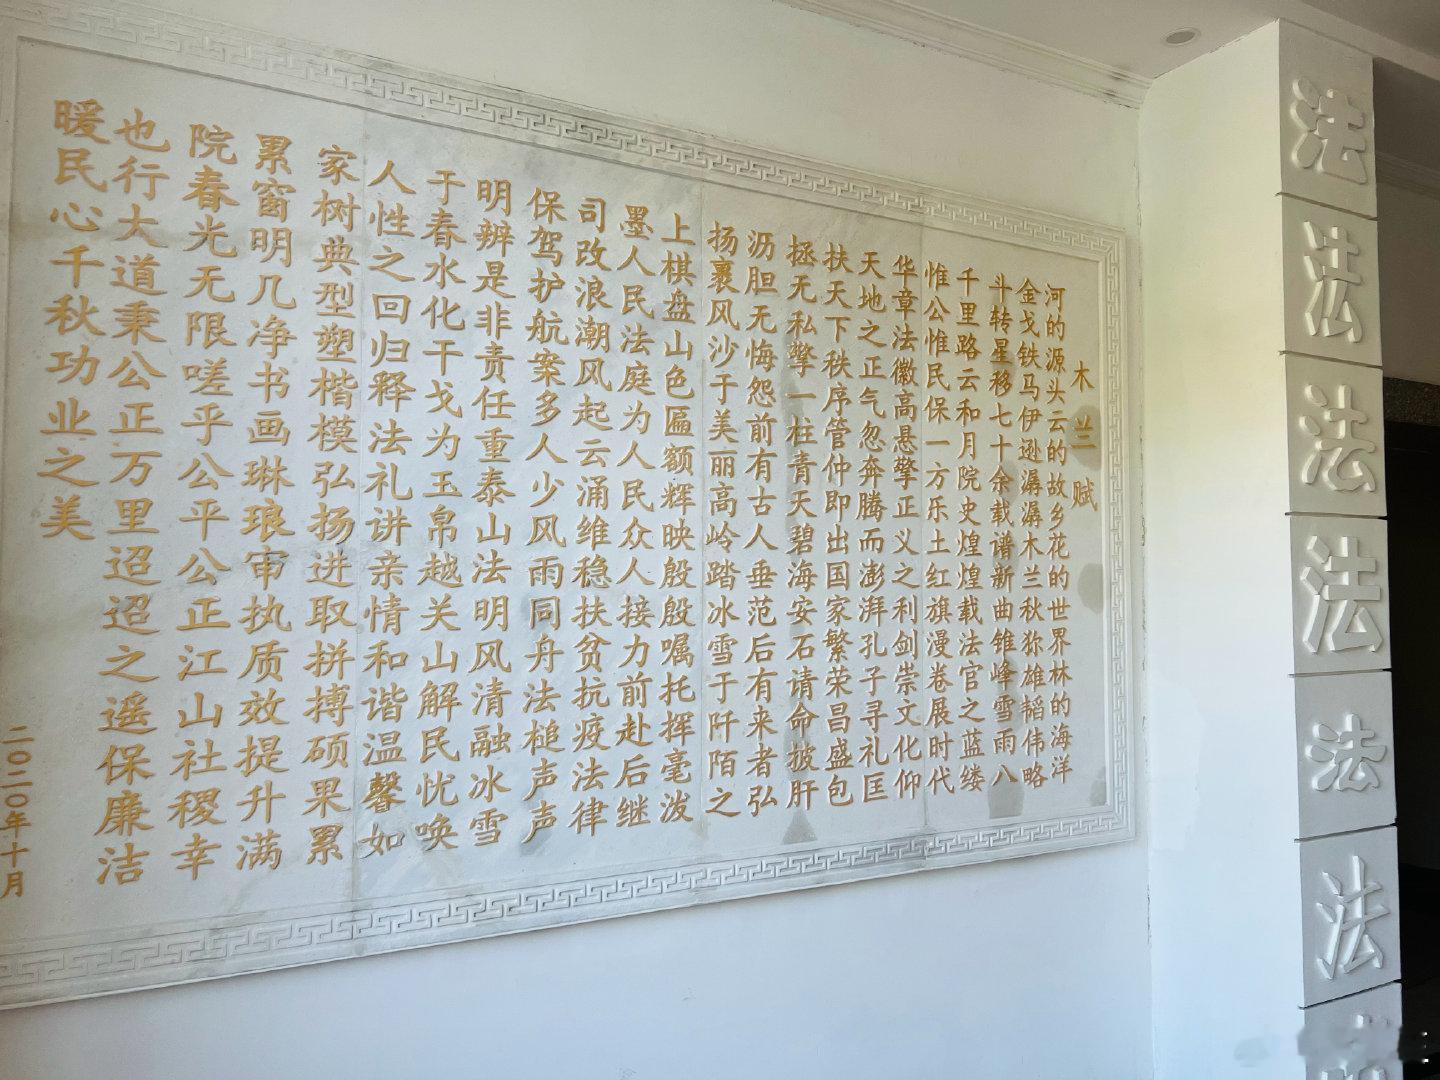 木兰赋
河的源头云的故乡花的世界林的海洋
金戈铁马伊逊潺潺木兰秋狝雄韬伟略
斗转星移七十余载谱新曲锥峰雪雨八
千里路云和月院史煌煌载法官之蓝缕
惟公惟民保一方乐土红旗漫卷展时代
华章法徽高悬擎正义之利剑崇文化仰
天地之正气忽奔腾而澎湃孔子寻礼匡
扶天下秩序管仲即出国家繁荣昌盛包
拯无私擎一柱青天碧海安石请命披肝
沥胆无悔怨前有古人垂范后有来者弘
扬襄风沙于美丽高岭踏冰雪于阡陌之
上棋盘山色匾额辉映殷殷嘱托挥毫泼
墨人民法庭为人民众人接力前赴后继
司改浪潮风起云涌维稳扶贫抗疫法律
保驾护航案多人少风雨同舟法槌声声
明辨是非责任重泰山法明风清融冰雪
于春水化干戈为玉帛越关山解民忧唤
人性之回归释法礼讲亲情和谐温馨如
家树典型塑楷模弘扬进取拼搏硕果累
累窗明几净书画琳琅审执质效提升满
院春光无限嗟乎公平公正江山社稷幸
也行大道秉公正万里迢迢之遥保廉洁
暖民心千秋功业之美
二〇二〇年十月
法
法
法
法
法
法